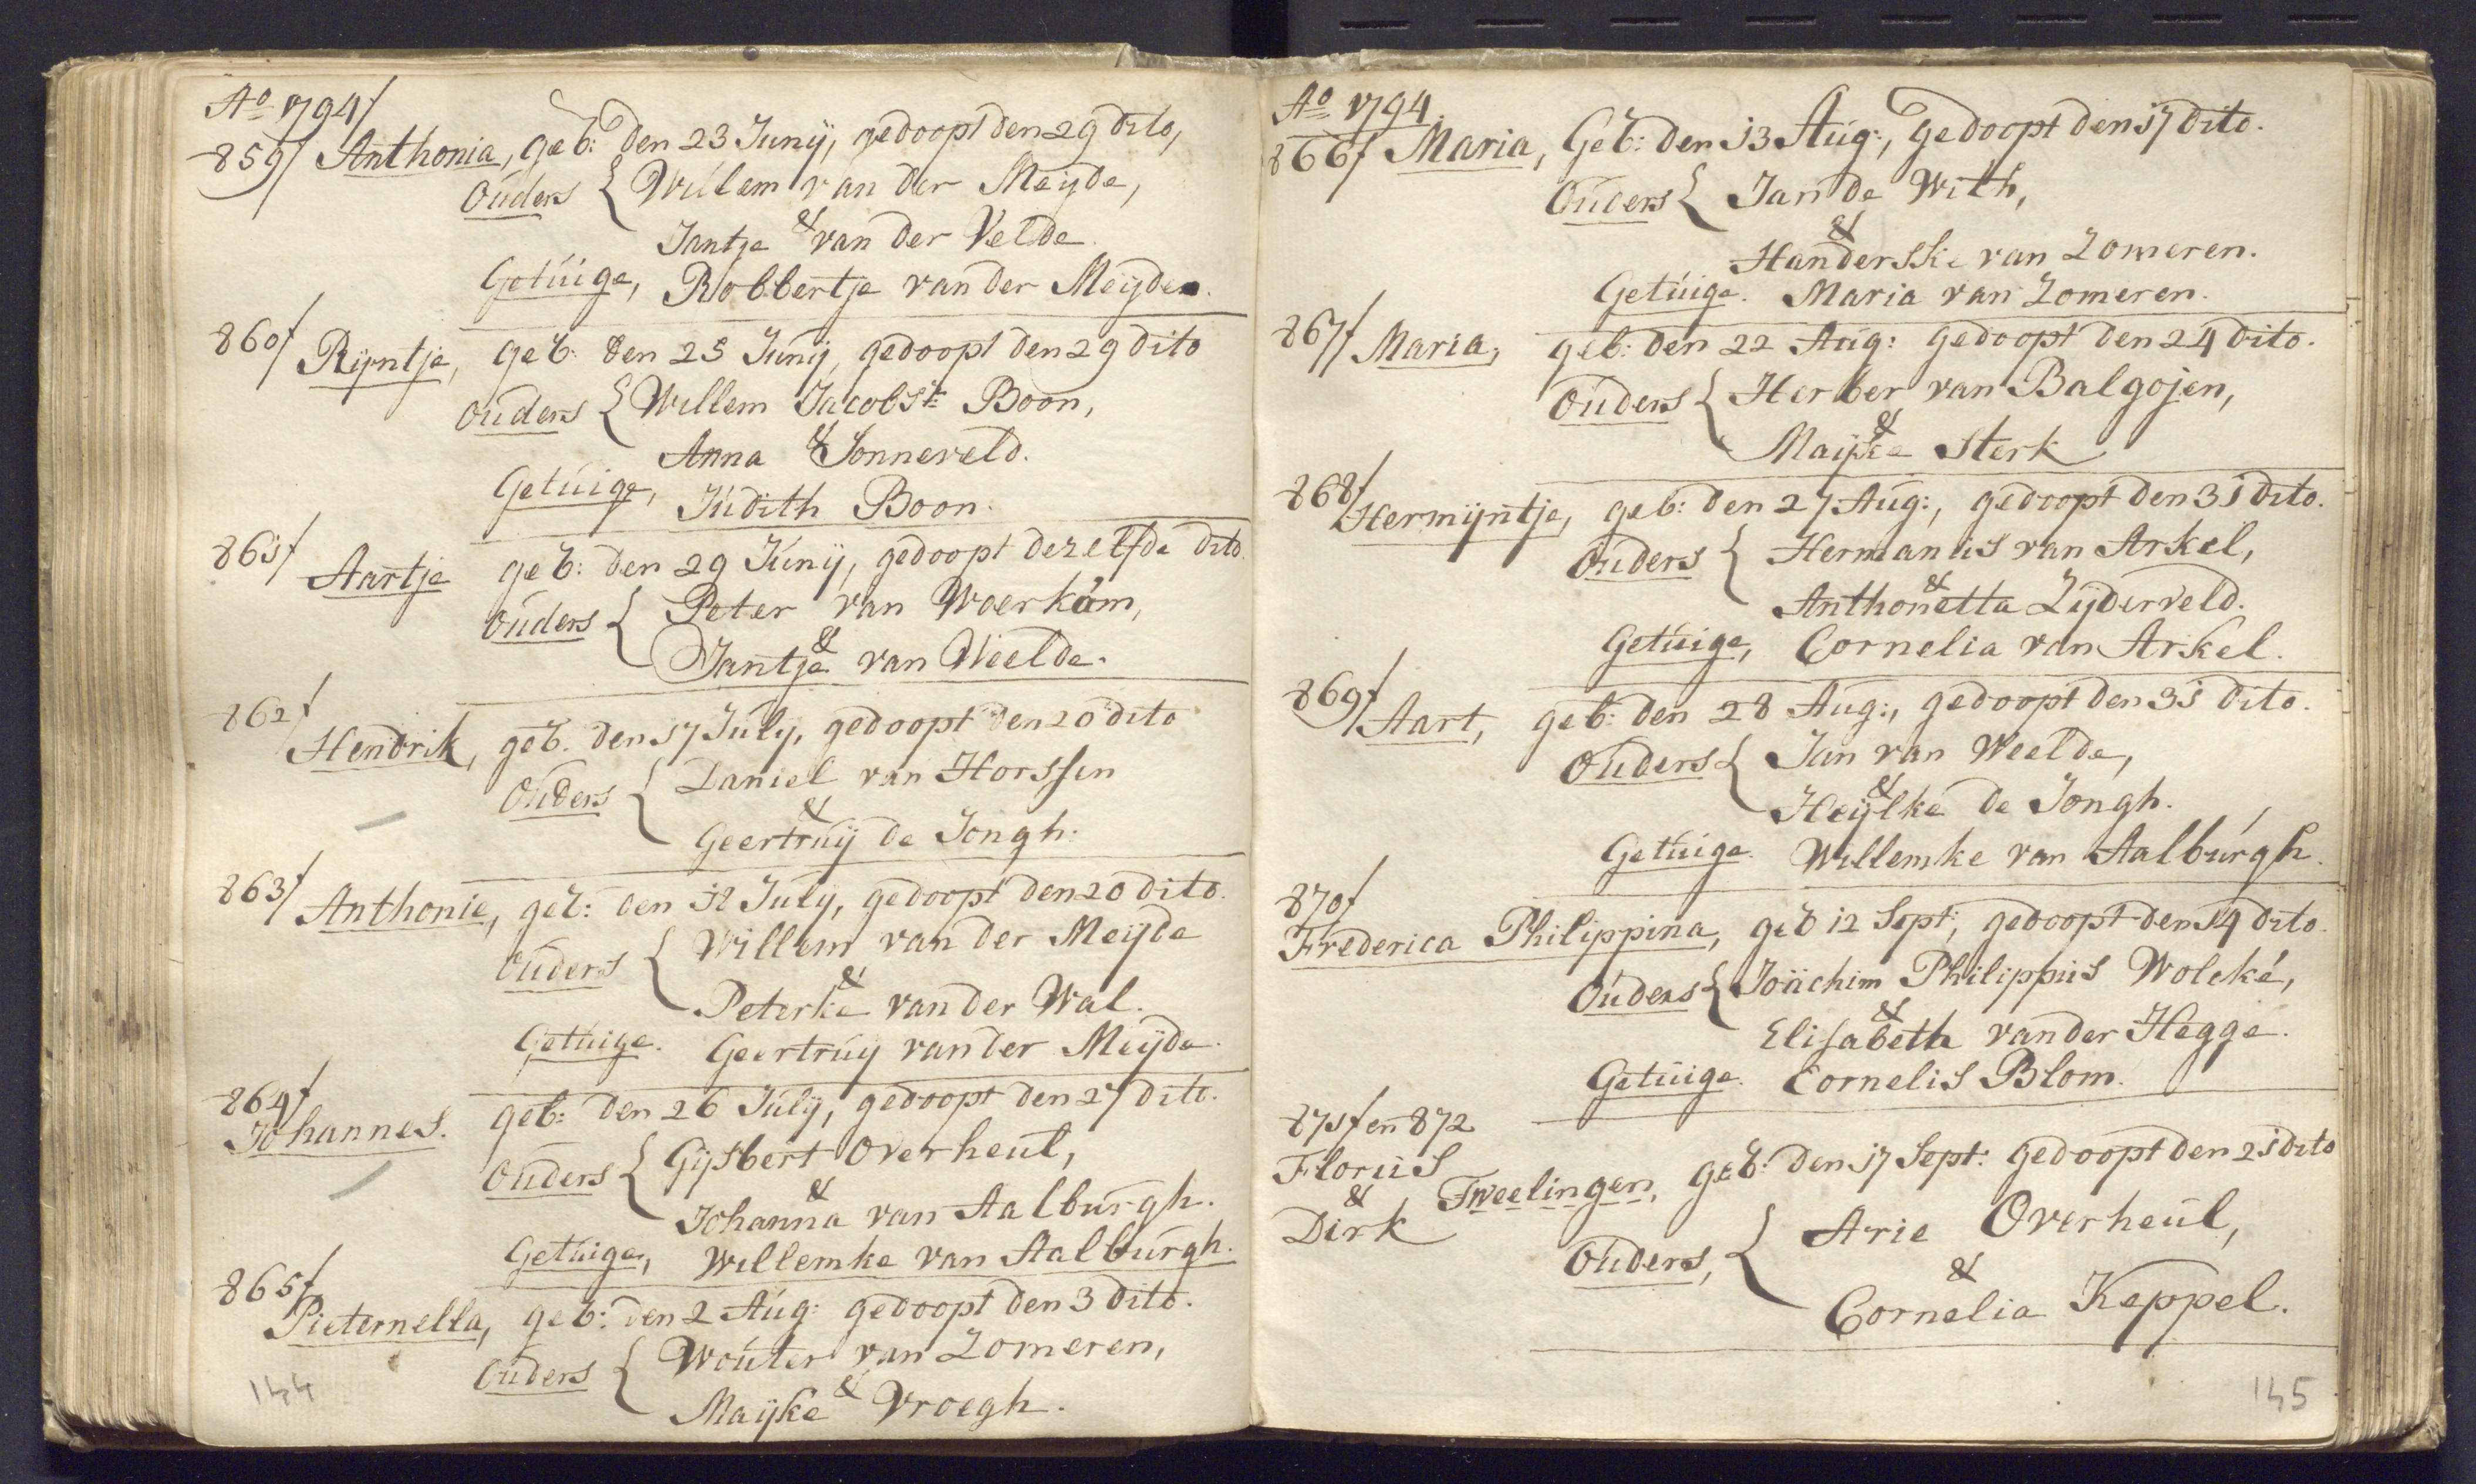 Ao 1794/
859/ Anthonia, geb: den 23 Junÿ, gedoopt den 29 dito,
Ouders { Willem van der Meyde,
&
Jantje van der Velde.
Getuige, Robbertje van der Meÿden.
860/ Rijntje, geb: den 25 Junÿ, gedoopt den 29 dito
Ouders { Willem Jacobsz Boon,
&
Anna Sonneveld.
Getuige, Judith Boon.
861/ Aartje geb: den 29 Junÿ, gedoopt dezelfde dito.
Ouders { Peter van Woerkom,
&
Jantje van Weelde.
862/ Hendrik, geb. den 17 July, gedoopt den 20 dito
Ouders { Daniel van Horssen
&
Geertruÿ de Jongh.
863/ Anthonie, geb: den 12 July, gedoopt den 20 dito.
Ouders { Willem van der Meÿde
&
Peterke van der Wal.
Getuige. Geertruy van der Meÿde.
864/ Johannes. geb: den 26 Julÿ, gedoopt den 27 dito.
Ouders { Gijsbert Overheul,
&
Johanna van Aalburgh.
Getuige, Willemke van Aalburgh.
865/ Pieternella, geb: den 2 Aug: gedoopt den 3 dito.
Ouders { Wouter van Zomeren,
&
Maÿke Vroegh.
144
Ao 1794.
866/ Maria, Geb: den 13 Aug:, gedoopt den 17 dito.
Ouders { Jan de With,
&
Handerske van Zomeren.
Getuige. Maria van Zomeren.
867/ Maria, geb: den 22 Aug: gedoopt den 24 dito.
Ouders { Herber van Balgojen,
&
Maÿke Sterk
868/ Hermijntje, geb: den 27 Aug:, gedoopt den 31 dito.
Ouders { Hermanus van Arkel,
&
Anthonetta Zÿderveld.
Getuige, Cornelia van Arkel.
869/ Aart, geb: den 28 Aug:, gedoopt den 31 dito.
Ouders { Jan van Weelde,
&
Heÿlke de Jongh.
Getuige. Willemke van Aalburgh.
870/
Frederica Philippina, geb 12 Sept; gedoopt den 14 dito.
Ouders { Joächim Philippus Wolcké,
&
Elisabeth van der Hegge.
Getuige. Cornelis Blom.
871/ en 872
Floruis
& Tweelingen, geb: den 17 Sept: gedoopt den 21 dito
Dirk
Ouders, { Arie Overheul,
&
Cornelia Keppel.
145